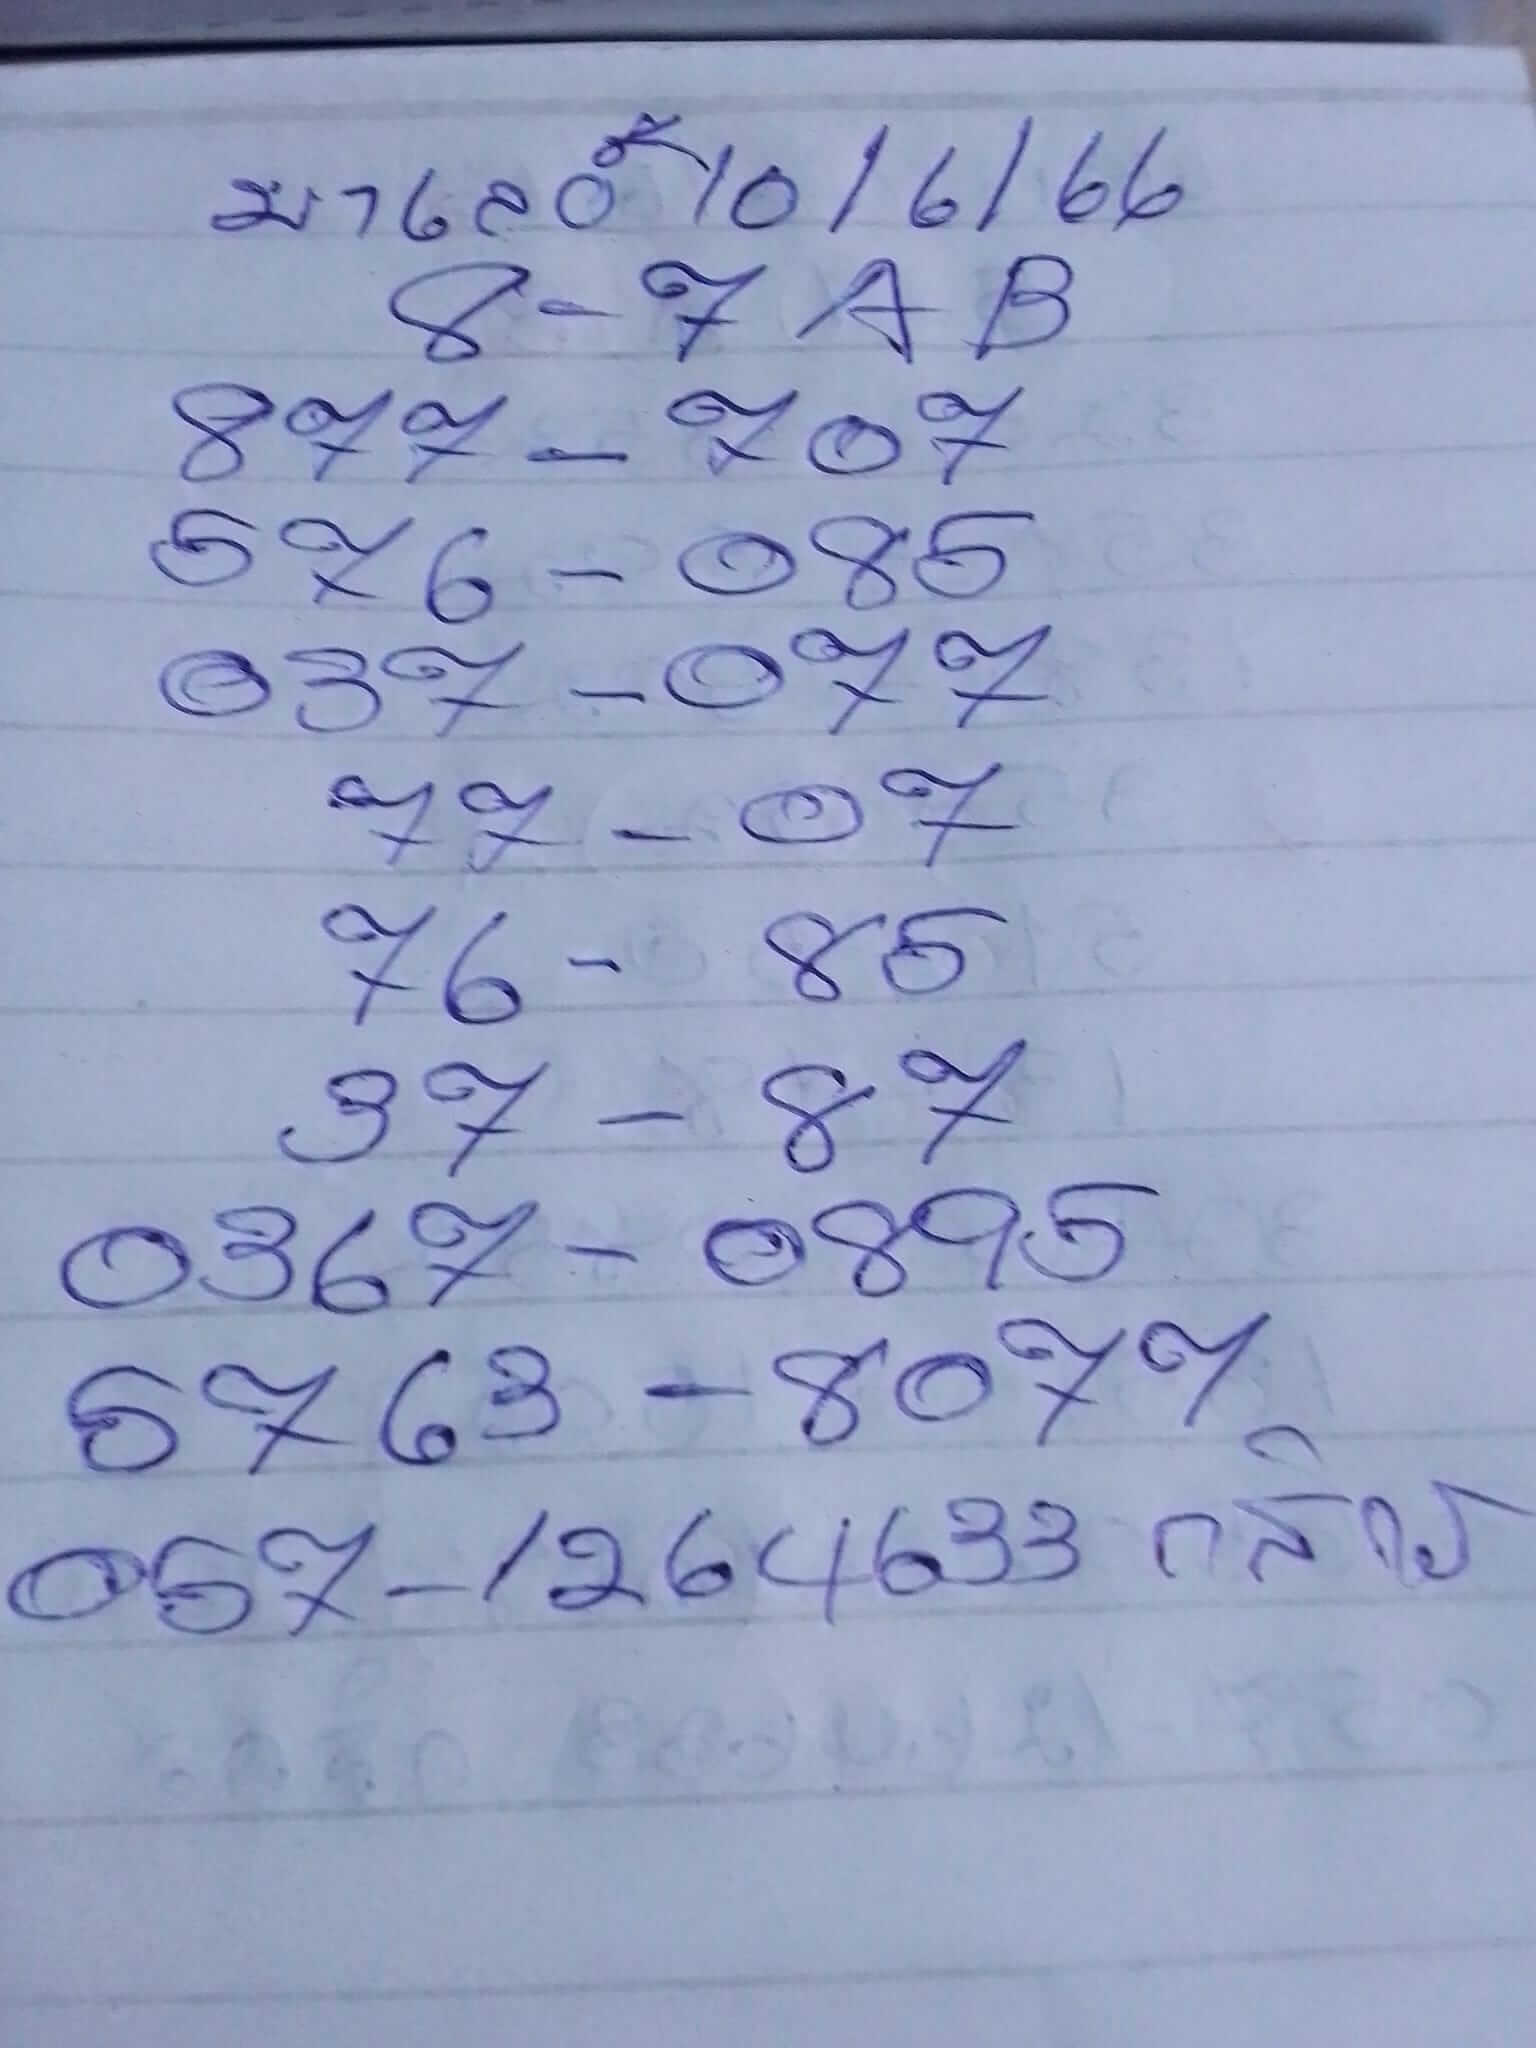 มาเลย์ 10/6/66
8-7 AB
877-707
576-085
037-077
77-07
76-85
37-87
0367-0895
5763-8077
057-1264633